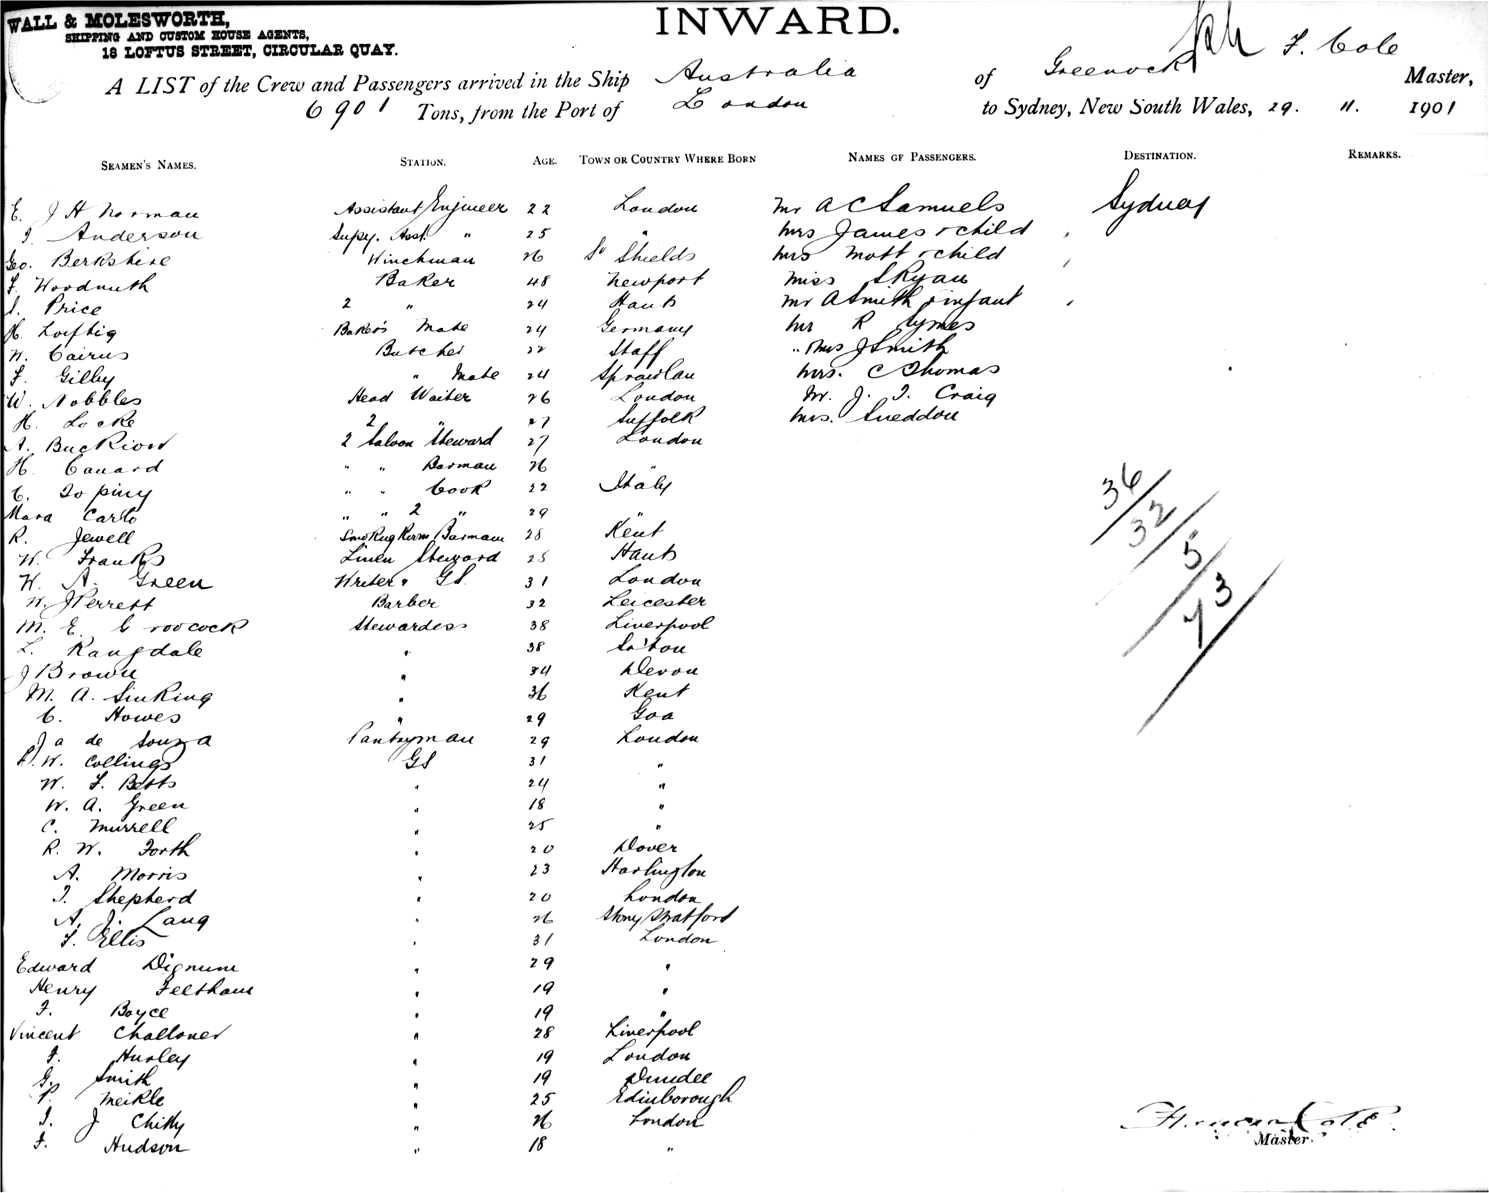 WALL & MOLESWORTH,
SHIPPING AND CUSTOM HOUSE AGENTS,
18 LOFTUS STREET, CIRCULAR QUAY.
INWARD.
A LIST of the Crew and Passengers arrived in the Ship Australia of Greenock F. Cole Master,
6901 Tons, from the Port of London to Sydney, New South Wales, 29. 11. 1901
SEAMEN'S NAMES. STATION. AGE. TOWN OR COUNTRY WHERE BORN NAMES OF PASSENGERS. DESTINATION. REMARKS.
E. J H Norman Assistant Engineer 22 London Mr A C Samuels Sydney
J. Anderson Supy. Asst. " 25 " Mrs James & child "
Geo. Berkshire Winchman 26 So Shields Mrs Mott & child "
F. Woodnuth Baker 48 Newport Miss S Ryan
S. Price 2 " 24 Hants Mr A Smith & infant "
H. Loftig Baker's Mate 24 Germany Mr R Symes
W. Cairns Butcher 22 Staff " Mrs J Smith
F. Gilby " Mate 24 Mrs. C Thomas
W. Nobbles Head Waiter 26 London Mr. J. T. Craig
H. Locke 2 " 27 Suffolk Mrs. Sneddon
A. 2 Saloon Steward 27 London
H. Canard " " Barman 26 "
C. Topiny " " Cook 22 Italy
Mara Carlo " " 2 " 29 "
R. Jewell Smoking Room Barman 28 Kent
W. Franks Linen Steward 25 Hants
W. A. Green Writer & GS 31 London
W. J Perrett Barber 32 Leicester
M. E. Croocock Stewardess 38 Liverpool
L. Rangdale " 38 So'ton
J Brown " 34 Devon
M. A. Sinking " 36 Kent
C. Howes " 29 Goa
J a de Souza Pantryman 29 London
W. Collings GS 31 "
W. F. Betts " 24 "
W. A. Green " 18 "
C. Murrell " 25 "
R. W. Forth " 20 Dover
A. Morris " 23 Harlington
T. Shepherd " 20 London
A. J. Lang " 26 Stony Stratford
F. Ellis " 31 London
Edward Dignum " 29 "
Henry Feltham " 19 "
F. Boyce " 19 "
Vincent Challoner " 28 Liverpool
F. Hurley " 19 London
G. Smith " 19 Dundee
P. Meikle " 25 Edinborough
T. J Chitty " 26 London
F. Hudson " 18 "
36
32
5
73
Cole
Master